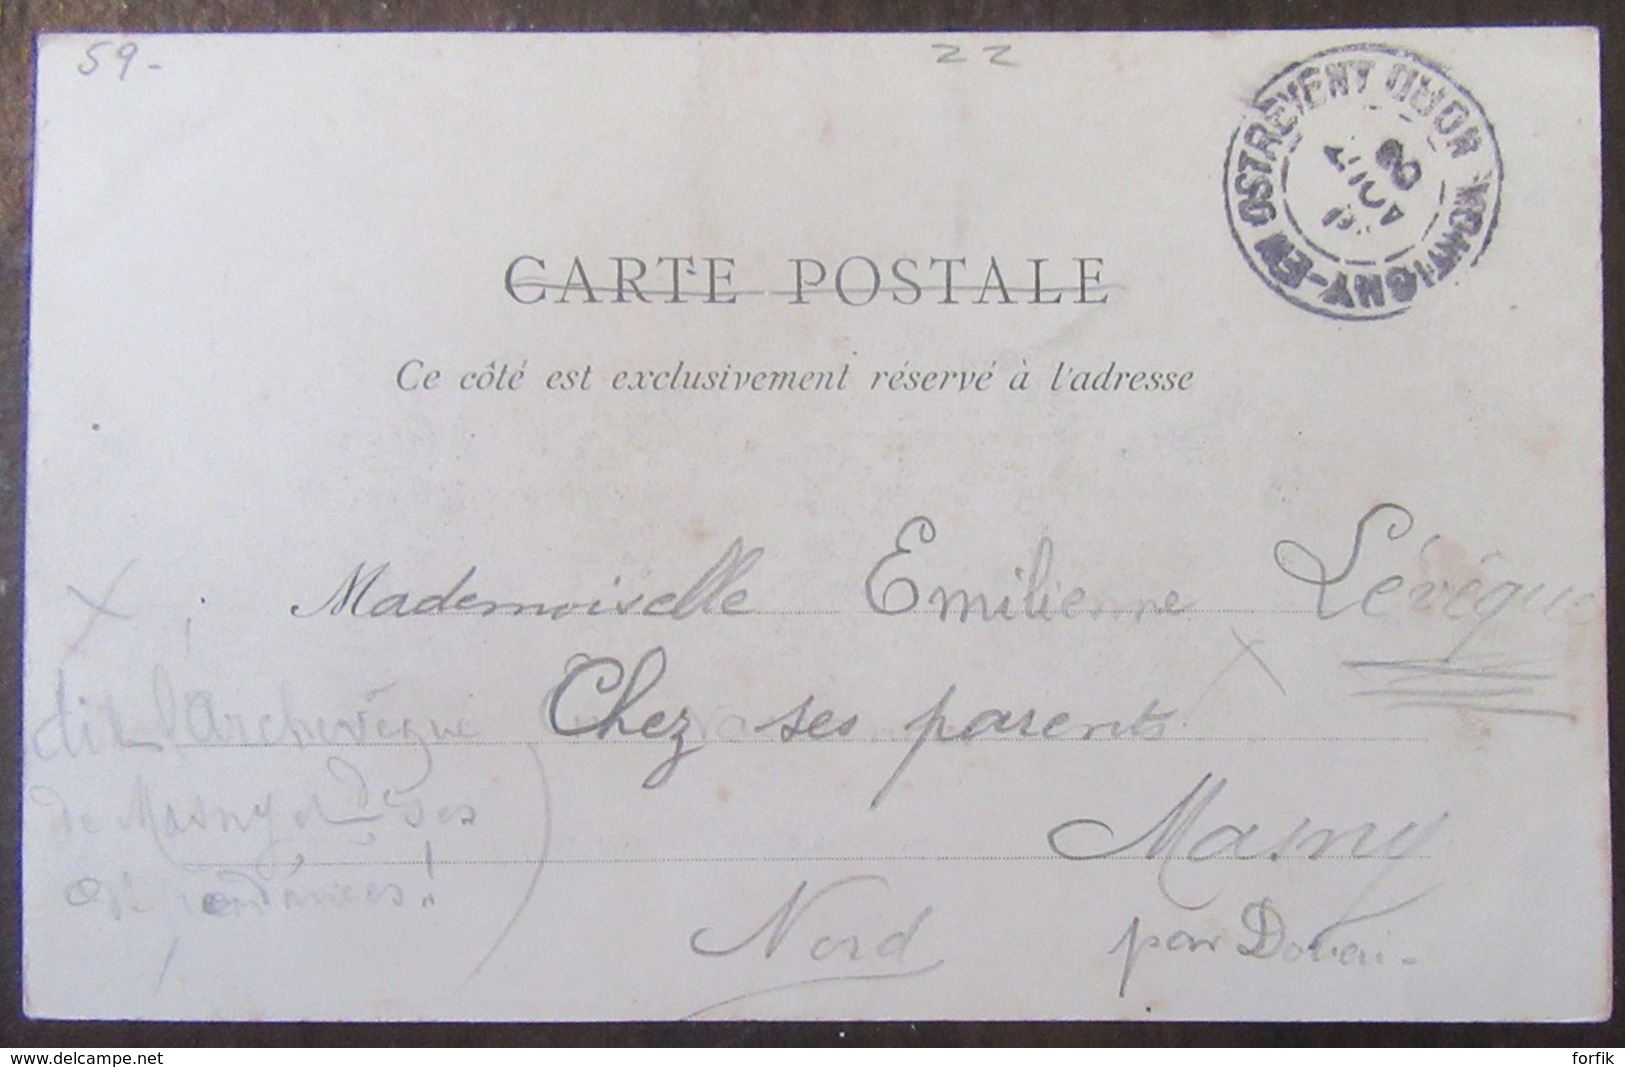 59-
22
MONTIGNY-EN-OSTREVENT NORD
AOUT
CARTE POSTALE
Ce côté est exclusivement réservé à l'adresse
Mademoiselle Emilienne Lévêque
Chez ses parents
Masny
Nord
par Douai-
dit l'Archevêque
de Masny et de ses
dépendances!
delcampe.net
forfik